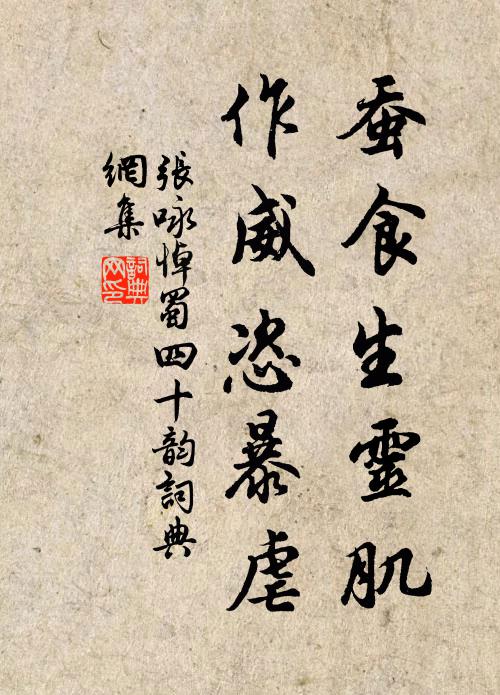 蚕食生靈肌
作威恣暴虐
張咏悼蜀四十韵詞典
網集
詞典
网印